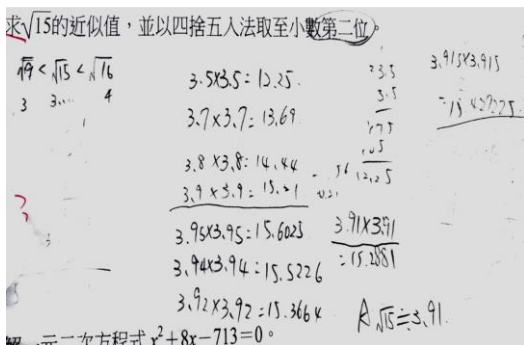 求√15的近似值，並以四捨五入法取至小數第二位。
√9 < √15 < √16
3 3.… 4
3.5×3.5=12.25
3.7×3.7=13.69
3.8×3.8=14.44
3.9×3.9=15.21
3.95×3.95=15.6025
3.94×3.94=15.5226
3.92×3.92=15.3664
3.5
3.5
12.25
3.91×3.91
=15.2881
3.915×3.915
A √15≒3.91
一元二次方程式 x²+8x-713=0。